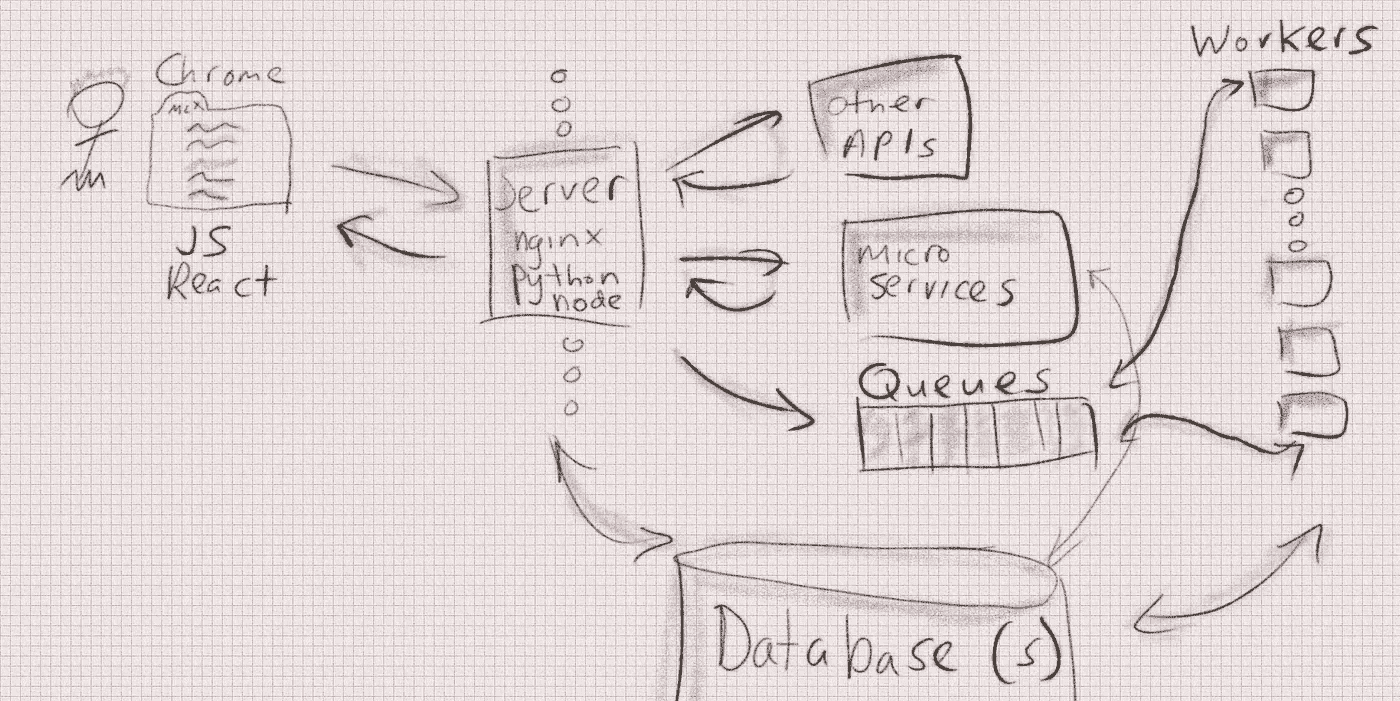 Chrome
JS
React
Server
nginx
Python
node
other
APIs
Micro
services
Queues
Workers
Database (s)